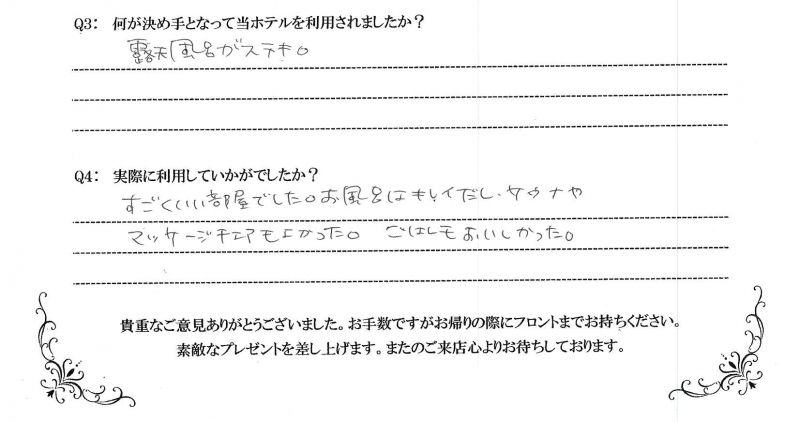 Q3： 何が決め手となって当ホテルを利用されましたか？
露天風呂がステキ。
Q4： 実際に利用していかがでしたか？
すごくいい部屋でした。お風呂はキレイだし、サウナや
マッサージチェアもよかった。 ごはんもおいしかった。
貴重なご意見ありがとうございました。お手数ですがお帰りの際にフロントまでお持ちください。
素敵なプレゼントを差し上げます。またのご来店心よりお待ちしております。